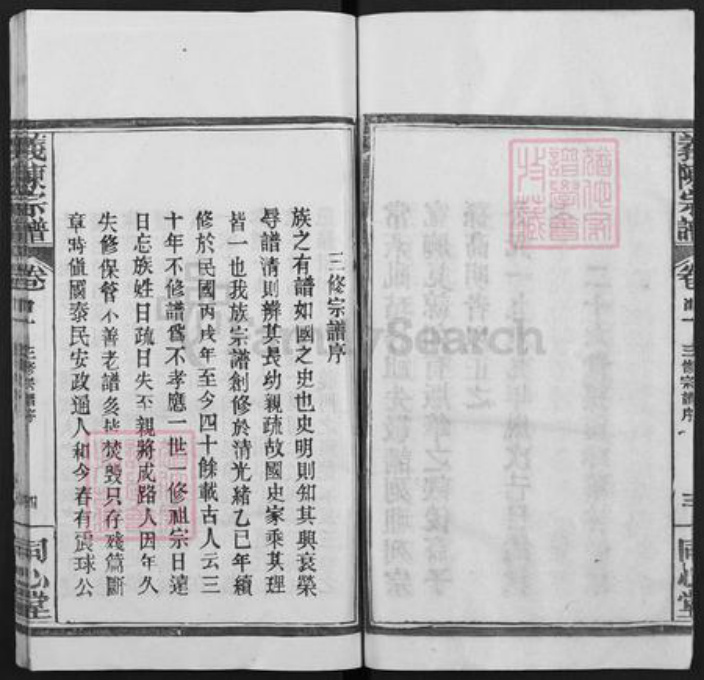 三修宗譜序
族之有譜如國之史也史明則知其興衰榮
辱譜清則辨其長幼親疏故國史家乘其理
皆一也我族宗譜創修於清光緒乙巳年續
修於民國丙戌年至今四十餘載古人云三
十年不修譜爲不孝應一世一修祖宗日遠
日忘族姓日疏日失至親將成路人因年久
失修保管不善老譜多焚毀只存殘篇斷
章時值國泰民安政通人和今春有振球公
義陳宗譜
卷首一
三修宗譜序
三
同心堂
義陳宗譜
卷首一
三修宗譜序
四
同心堂
FamilySearch